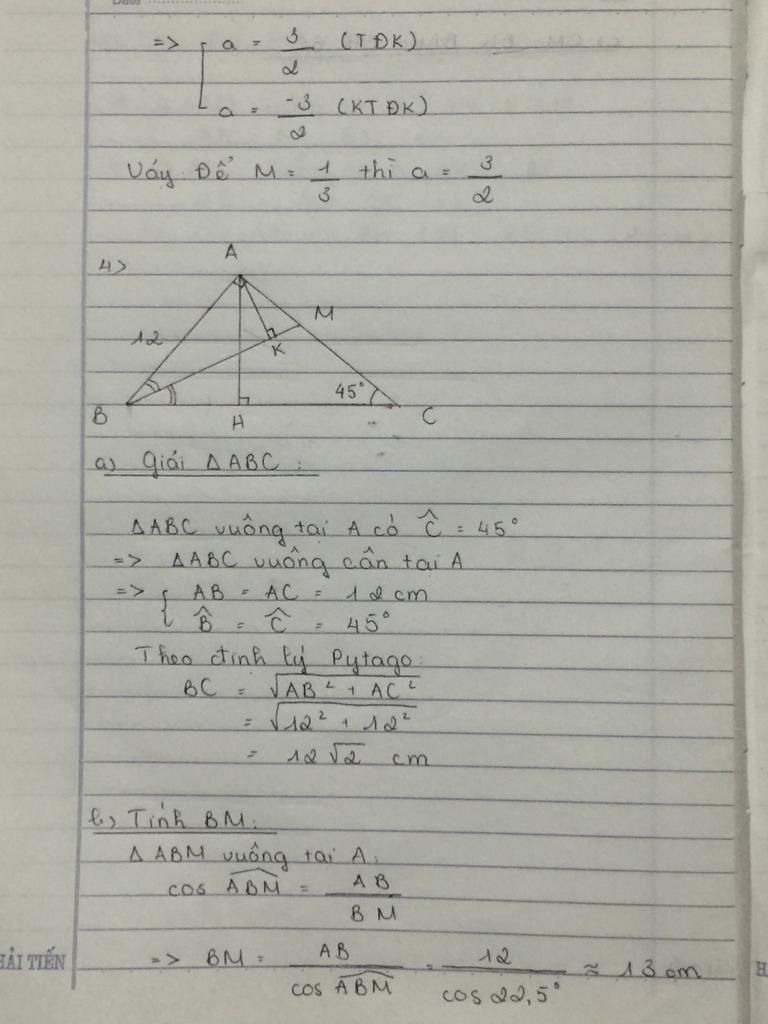 Date
=> [ a = 3/2 (TĐK)
a = -3/2 (KTĐK)
Vậy Để M = 1/3 thì a = 3/2
4>
A
12
M
K
45°
B
H
C
a) Giải ΔABC :
ΔABC vuông tại A có Ĉ = 45°
=> ΔABC vuông cân tại A
=> { AB = AC = 12 cm
B̂ = Ĉ = 45°
Theo định lý Pytago:
BC = √(AB² + AC²)
= √(12² + 12²)
= 12√2 cm
b, Tính BM:
Δ ABM vuông tại A:
cos ABM = AB/BM
=> BM = AB/cos ABM = 12/cos 22,5° ≈ 13 cm
HẢI TIẾN